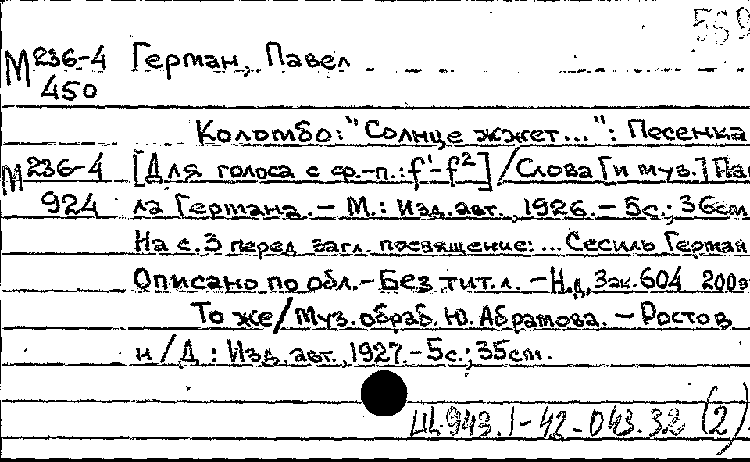 559
М 236-4 Герман, Павел
450
Коломбо: "Солнце жжет...": Песенка
М 236-4 [Для голоса с ф.-п.: f¹-f²] / Слова [и муз.] Пав
924 ла Германа. - М.: Изд. авт., 1926. - 5с.; 36см
На с. 3 перед загл. посвящение: ... Сесиль Герман
Описано по обл. - Без тит. л. - Н.д, Зак. 604 200э
То же / Муз. обраб. Ю. Абрамова. - Ростов
н/Д : Изд. авт., 1927. - 5с.; 35см.
Щ.943.1-42-043.32 (2)